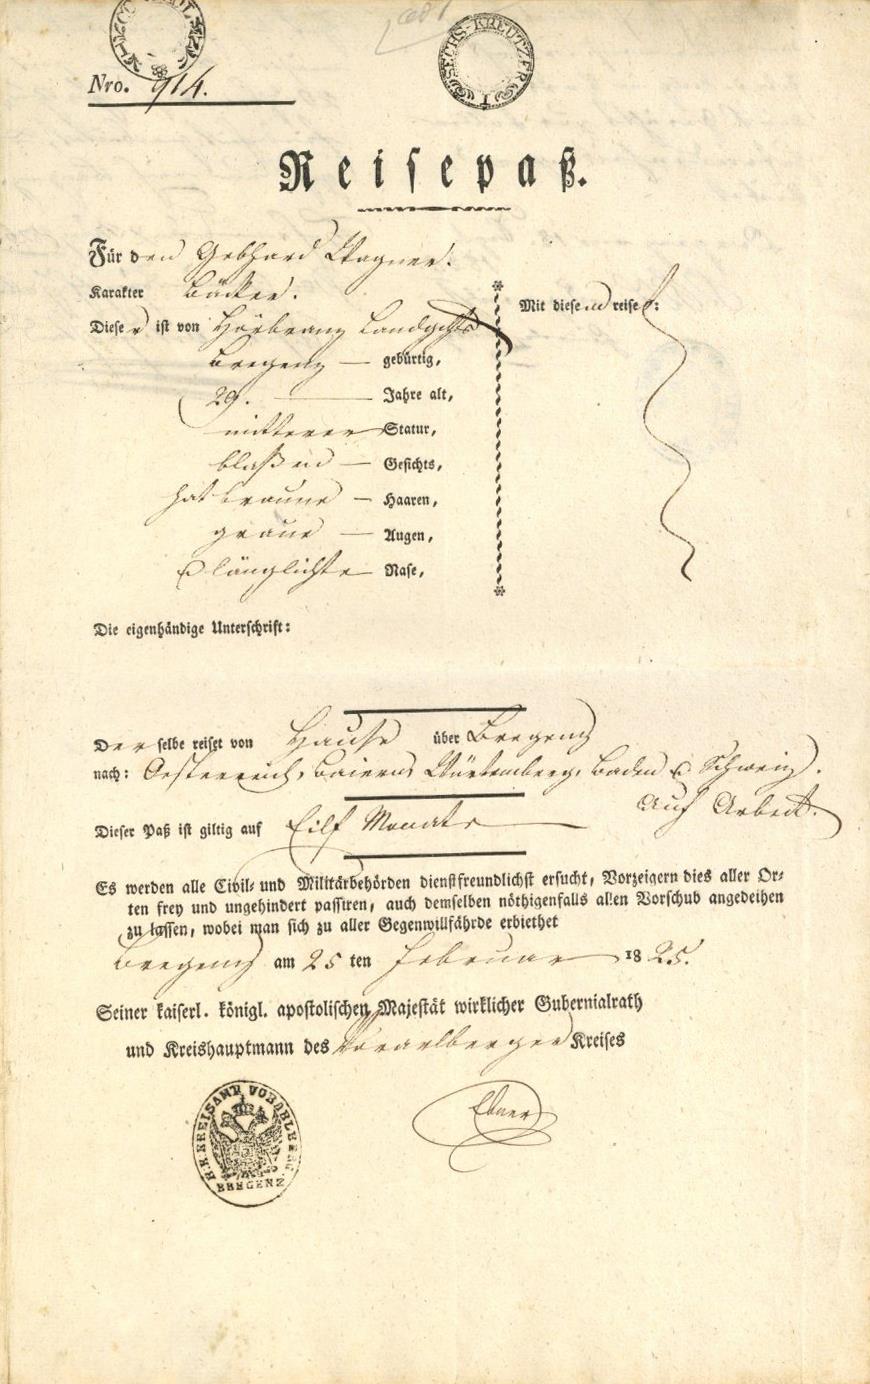 Nro. 914.
SECHS-KREUTZER
Reisepaß.
Für den Gebhard Wagner.
Karakter Bäcker.
Mit diesem reiset:
Dieser ist von Hörbranz Landgchts
Bregenz — gebürtig,
29. — Jahre alt,
mitterer Statur,
blaßen — Gesichts,
hat braune — Haaren,
graue — Augen,
u länglichte Nase,
Die eigenhändige Unterschrift:
Derselbe reiset von Hause über Bregenz
nach: Oesterreich, Baiern, Würtemberg, Baden u. Schweiz.
Auf Arbeit.
Dieser Paß ist giltig auf Eilf Monate —
Es werden alle Civil- und Militärbehörden dienstfreundlichst ersucht, Vorzeigern dies aller Or-
ten frey und ungehindert passiren, auch demselben nöthigenfalls allen Vorschub angedeihen
zu lassen, wobei man sich zu aller Gegenwillfährde erbiethet
Bregenz am 25 ten Februar 1825.
Seiner kaiserl. königl. apostolischen Majestät wirklicher Gubernialrath
und Kreishauptmann des Vorarlberger Kreises
K.K. KREISAMT VORARLBERG
BREGENZ
Ebner